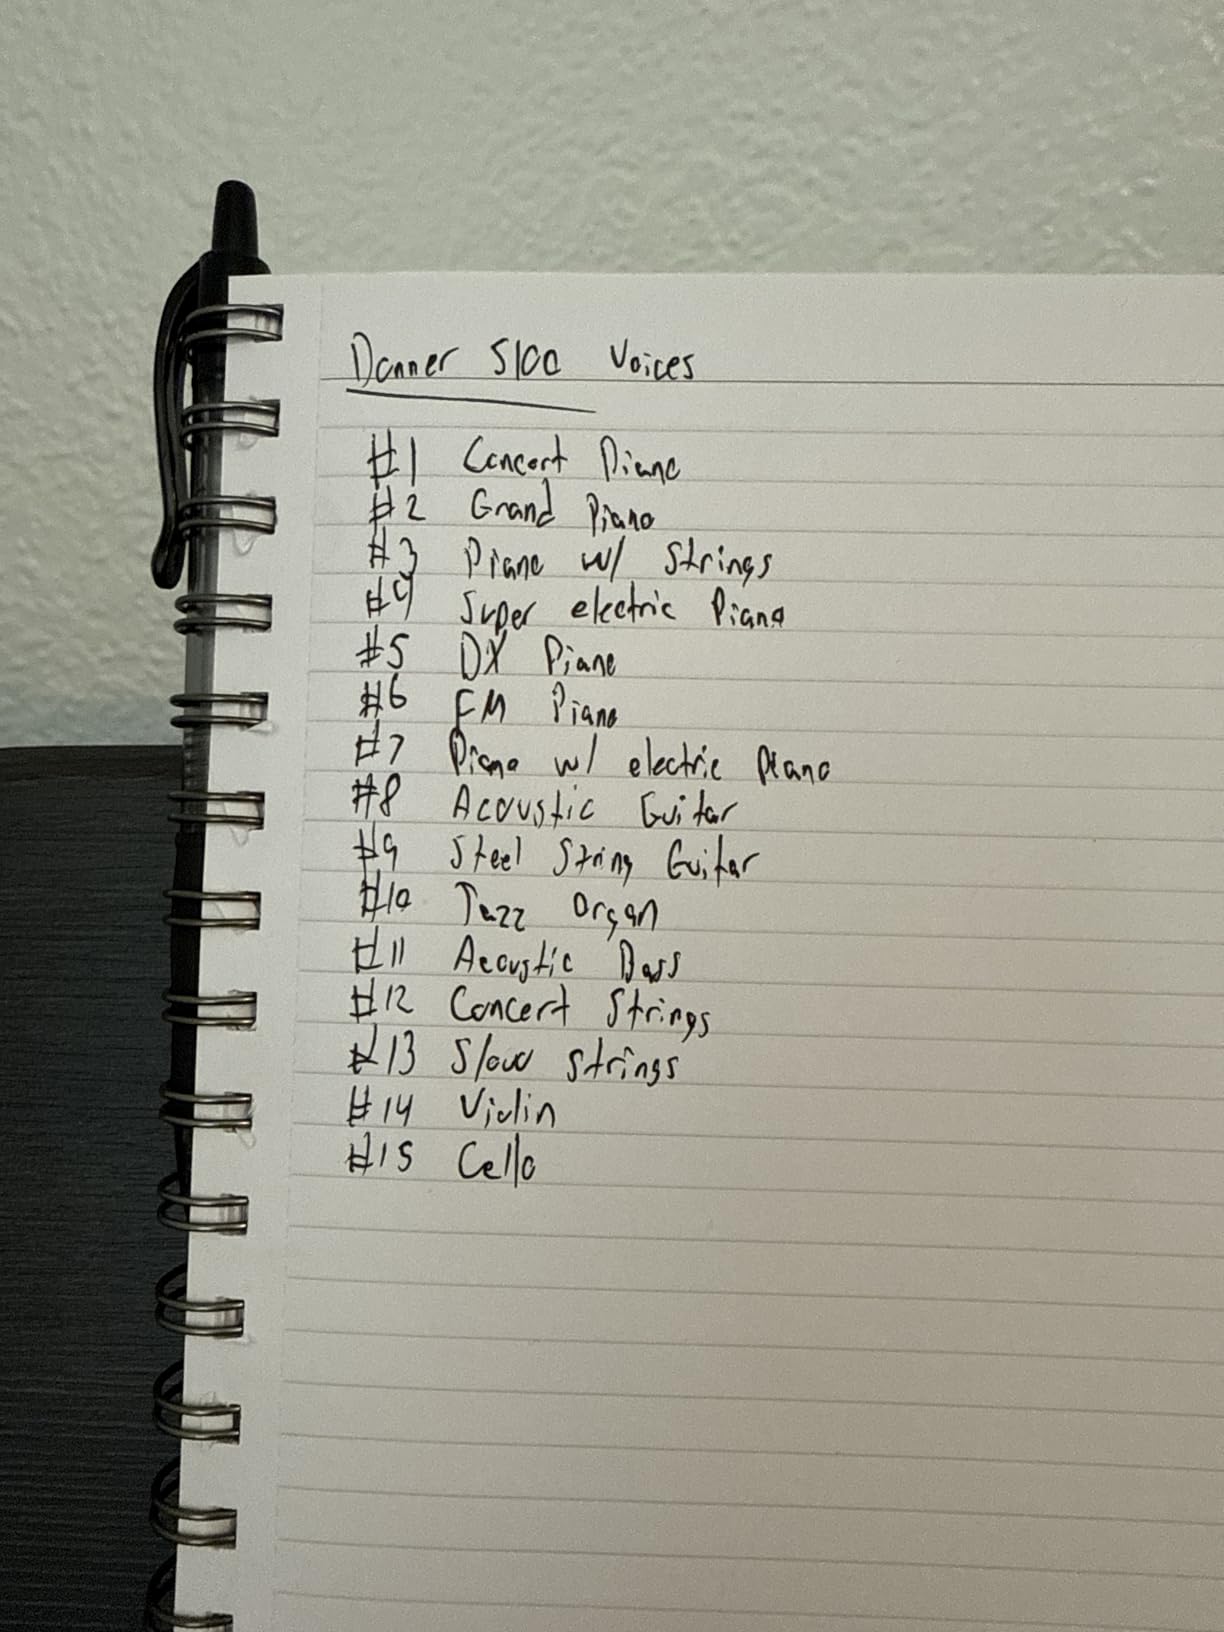 Donner S100 Voices
#1 Concert Piano
#2 Grand Piano
#3 Piano w/ Strings
#4 Super electric Piano
#5 DX Piano
#6 FM Piano
#7 Piano w/ electric Piano
#8 Acoustic Guitar
#9 Steel String Guitar
#10 Jazz Organ
#11 Acoustic Bass
#12 Concert Strings
#13 Slow Strings
#14 Violin
#15 Cello